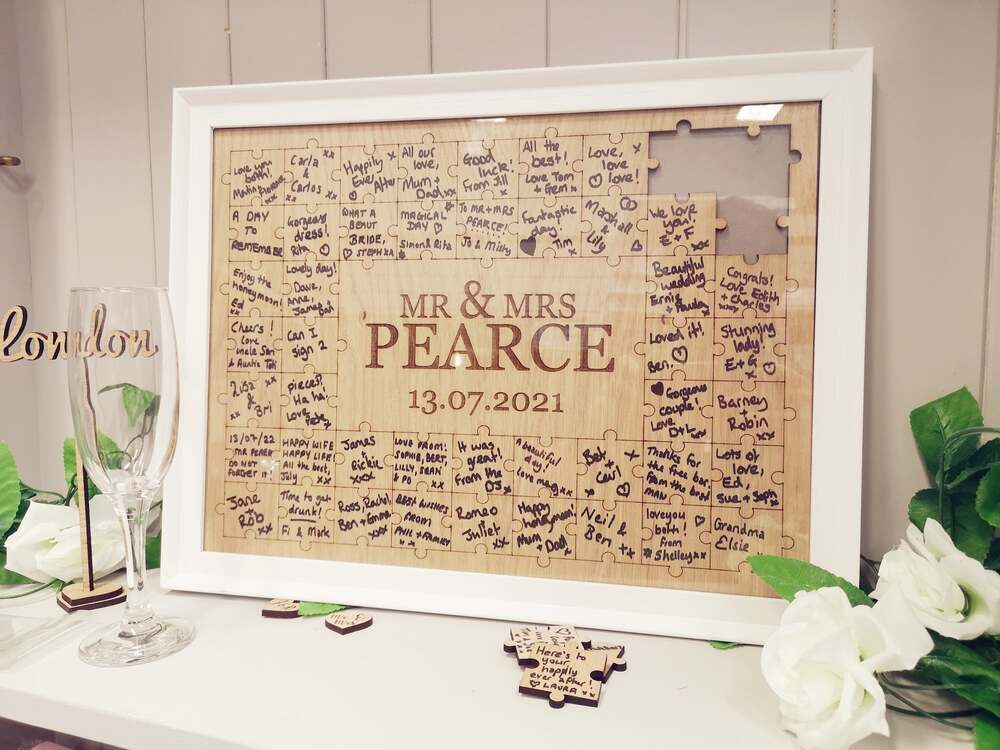 Love you
both!
Carla
&
Carlos
xx
Happily
Ever
After
xx
All our
love,
Mum +
Dad xx
Good
luck!
From Jill
All the
best!
Love Tom
+ Gem x
Love,
love
love!
A DAY
TO
REMEMBER
Gorgeous
dress!
Rita
WHAT A
BEAUT
BRIDE,
STEPH xx
MAGICAL
DAY
Simon & Rita
To MR + MRS
PEARCE!
Jo & Misty
Fantastic
day!
Tim
Marshall
&
Lily
We love
you!
E + F
xx
Enjoy the
honeymoon!
Ed
Lovely day!
Dave,
Anne,
Beautiful
wedding
Ernie
+ Paula
Congrats!
Love Edith
+ Charley
MR & MRS
PEARCE
13.07.2021
london
Cheers!
Love
uncle Sam
& Auntie
Can I
sign 2
Loved it!
Ben.
Stunning
lady!
E + G
xx
&
Bri
pieces?
Ha ha!
Love
Gorgeous
couple!
Love,
D + L
Barney
+
Robin
xx
13/07/22
MR PEARCE
DO NOT
FORGET IT!
HAPPY WIFE
HAPPY LIFE!
All the best,
July xx
James
+
Rickie
xxx
LOVE FROM:
SOPHIE, BERT,
LILLY, SEAN
& PO
It was
great!
From the
DJ
A beautiful
day!
Love meg xx
Bet x
+
Cai
Thanks for
the free bar.
From the best
MAN
Lots of
love,
Ed,
Sue + Soph
Jane
+
Rob
Time to get
drunk!
Fi & Mark
Ross, Rachel,
Ben + Emma
xxx
BEST WISHES
FROM
PHIL + FAMILY
Romeo
&
Juliet
xx
Happy
honeymoon!
Mum
+ Dad
Neil &
Ben
love you
both!
from
Shelley xx
Grandma
Elsie
Here's to
your
happily
ever after!
LAURA